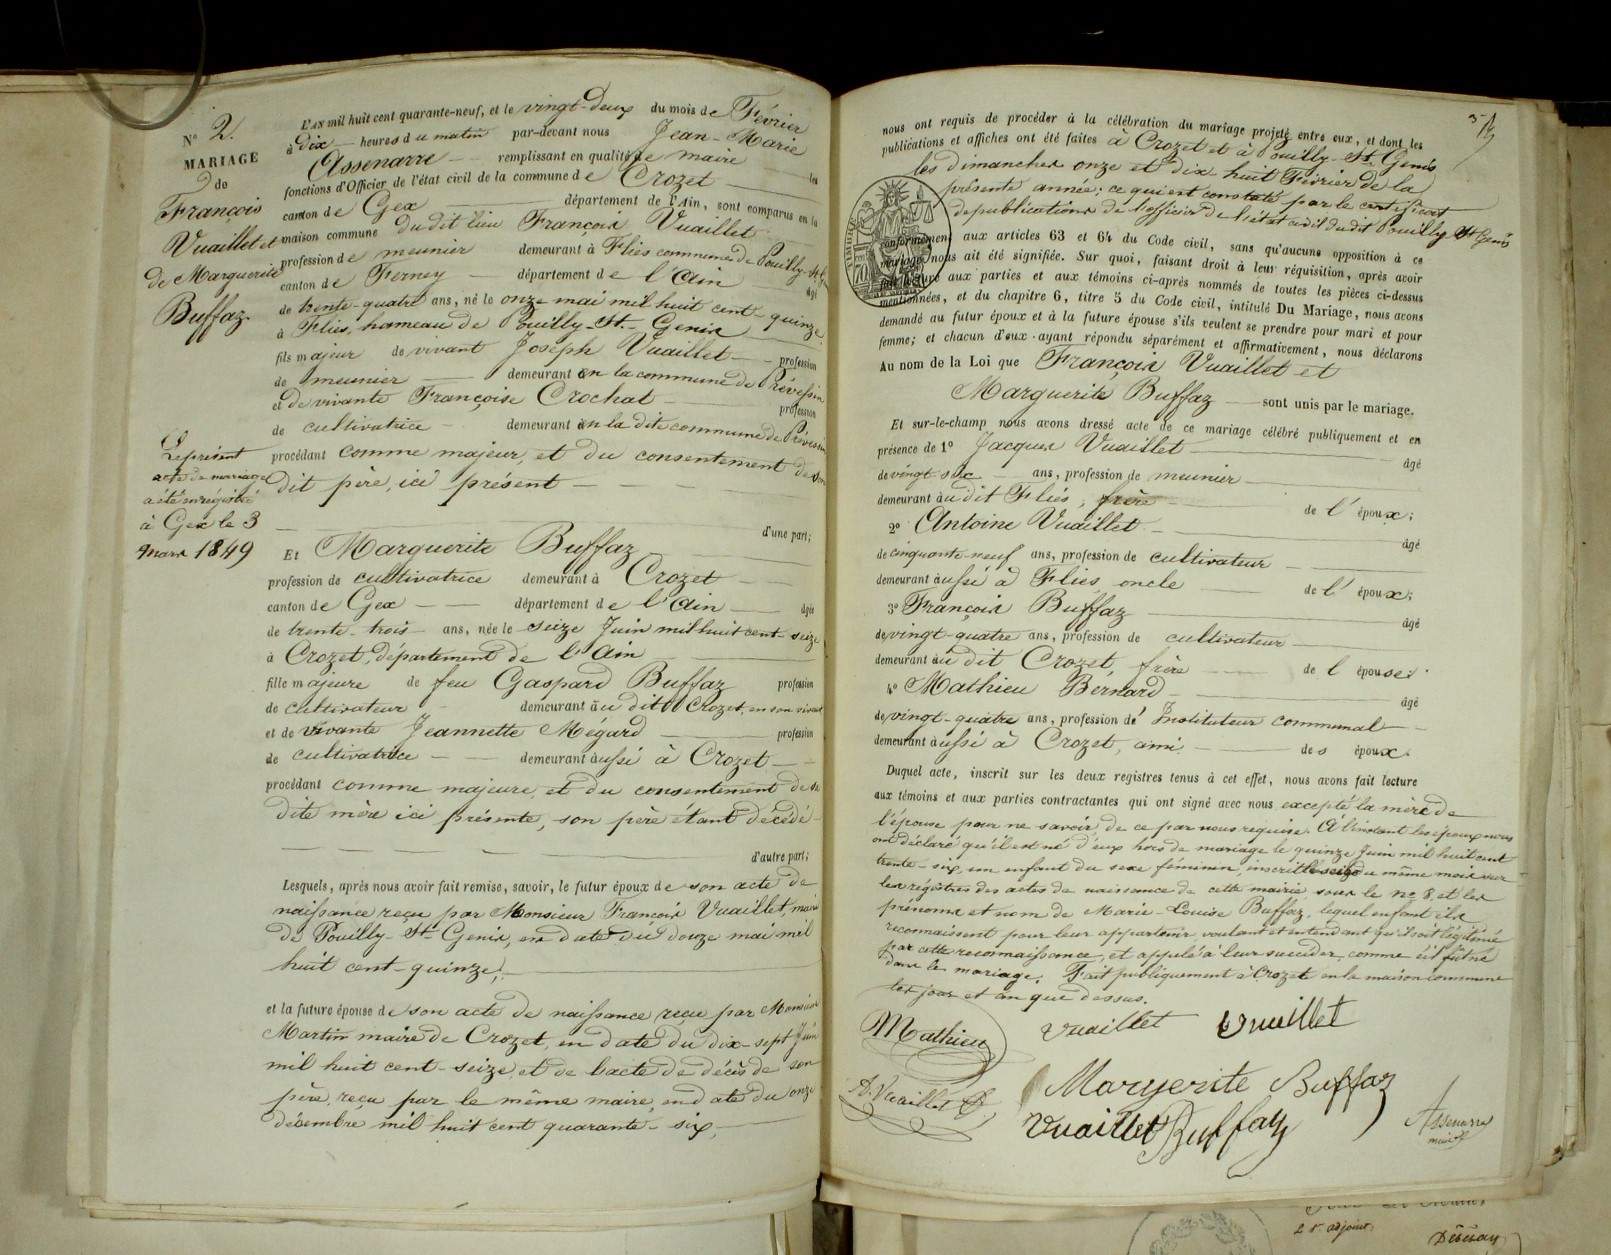 N° 2.
MARIAGE
de
François
Vuaillet et
de Marguerite
Buffaz.
Le présent
acte de mariage
a été enregistré
à Gex le 3
mars 1849
L'AN mil huit cent quarante-neuf, et le vingt-deux du mois de Février
à dix heures du matin par-devant nous Jean-Marie
Assenarre remplissant en qualité de maire les
fonctions d'Officier de l'état civil de la commune de Crozet
canton de Gex département de l'Ain, sont comparus en la
maison commune du dit lieu François Vuaillet
profession de meunier demeurant à Fliés commune de Pouilly-St-G
canton de Ferney département de l'Ain âgé
de trente-quatre ans, né le onze mai mil huit cent-quinze
à Fliés, hameau de Pouilly-St-Genix
fils majeur de vivant Joseph Vuaillet profession
de meunier demeurant en la commune de Prévessin
et de vivante Françoise Crochat profession
de cultivatrice demeurant en la dite commune de Prévessin
procédant comme majeur, et du consentement de son
dit père, ici présent
d'une part;
Et Marguerite Buffaz
profession de cultivatrice demeurant à Crozet
canton de Gex département de l'Ain âgée
de trente-trois ans, née le seize Juin mil huit cent-seize
à Crozet, département de l'Ain
fille majeure de feu Gaspard Buffaz profession
de cultivateur demeurant au dit Crozet, en son vivant
et de vivante Jeannette Mégard profession
de cultivatrice demeurant aussi à Crozet
procédant comme majeure, et du consentement de sa
dite mère ici présente, son père étant décédé
d'autre part;
Lesquels, après nous avoir fait remise, savoir, le futur époux de son acte de
naissance reçu par Monsieur François Vuaillet, maire
de Pouilly-St-Genix, en date du douze mai mil
huit cent-quinze;
et la future épouse de son acte de naissance reçu par Monsieur
Martin maire de Crozet, en date du dix-sept Juin
mil huit cent-seize, et de l'acte de décès de son
père, reçu par le même maire, en date du onze
décembre mil huit cent quarante-six,
nous ont requis de procéder à la célébration du mariage projeté entre eux, et dont les
publications et affiches ont été faites à Crozet et à Pouilly-St-Genix
les dimanches onze et dix huit Février de la
présente année; ce qui est constaté par le certificat
de publications de l'officier de l'état civil du dit Pouilly St Genis
conformément aux articles 63 et 64 du Code civil, sans qu'aucune opposition à ce
mariage nous ait été signifiée. Sur quoi, faisant droit à leur réquisition, après avoir
fait lecture aux parties et aux témoins ci-après nommés de toutes les pièces ci-dessus
mentionnées, et du chapitre 6, titre 5 du Code civil, intitulé Du Mariage, nous avons
demandé au futur époux et à la future épouse s'ils veulent se prendre pour mari et pour
femme; et chacun d'eux ayant répondu séparément et affirmativement, nous déclarons
Au nom de la Loi que François Vuaillet et
Marguerite Buffaz sont unis par le mariage.
Et sur-le-champ nous avons dressé acte de ce mariage célébré publiquement et en
présence de 1° Jacques Vuaillet âgé
de vingt-six ans, profession de meunier
demeurant au dit Fliés, frère de l'époux;
2° Antoine Vuaillet âgé
de cinquante-neuf ans, profession de cultivateur
demeurant aussi à Fliés, oncle de l'époux;
3° François Buffaz âgé
de vingt-quatre ans, profession de cultivateur
demeurant au dit Crozet, frère de l épouse;
4° Mathieu Bérnard âgé
de vingt-quatre ans, profession d' Instituteur communal
demeurant aussi à Crozet, ami des époux.
Duquel acte, inscrit sur les deux registres tenus à cet effet, nous avons fait lecture
aux témoins et aux parties contractantes qui ont signé avec nous, excepté la mère de
l'épouse pour ne savoir, de ce par nous requise. A l'instant les époux nous
ont déclaré qu'il est né d'eux hors de mariage le quinze Juin mil huit cent
trente-six, un enfant du sexe féminin, inscrit le seize du même mois sur
les régistres des actes de naissance de cette mairie, sous le n° 8, et les
prénoms et nom de Marie-Louise Buffaz, lequel enfant ils
reconnaissent pour leur appartenir voulant et entendant qu'il soit légitimé
par cette reconnaissance, et appelé à leur succéder, comme s'il fût né
dans le mariage. Fait publiquement à Crozet en la maison commune
les jour et an que dessus.
Mathieu Vuaillet Vuaillet
A. Vuaillet Maryerite Buffaz
Vuaillet Buffaz Assenarre
maire
L'adjoint,